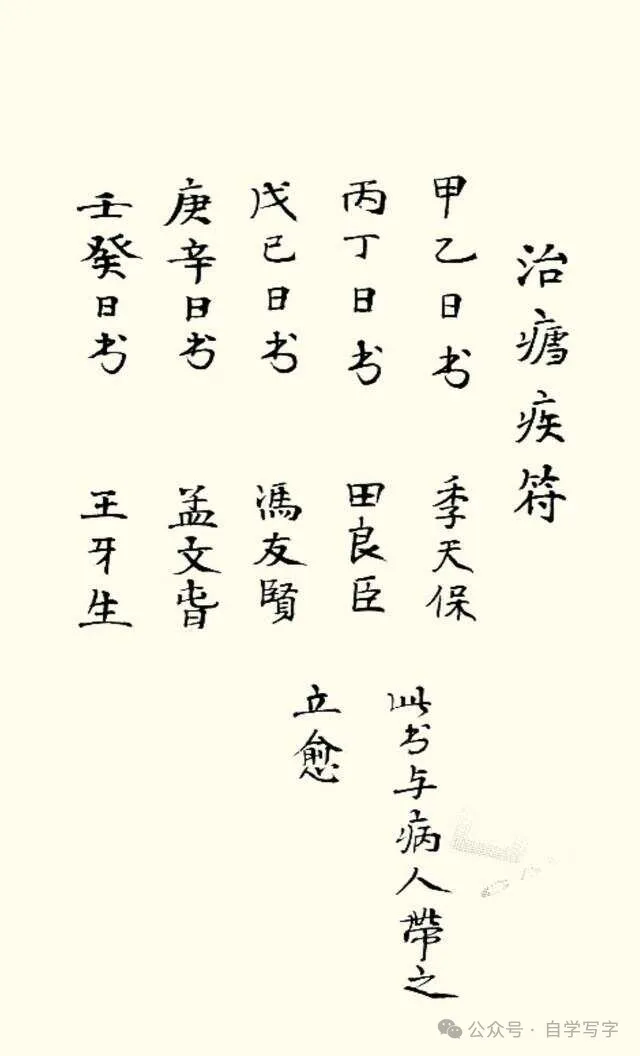 治瘧疾符
甲乙日书 季天保
丙丁日书 田良臣
戊己日书 馮友賢
庚辛日书 孟文旾
壬癸日书 王牙生
此书与病人帶之
立愈
公众号·自学写字